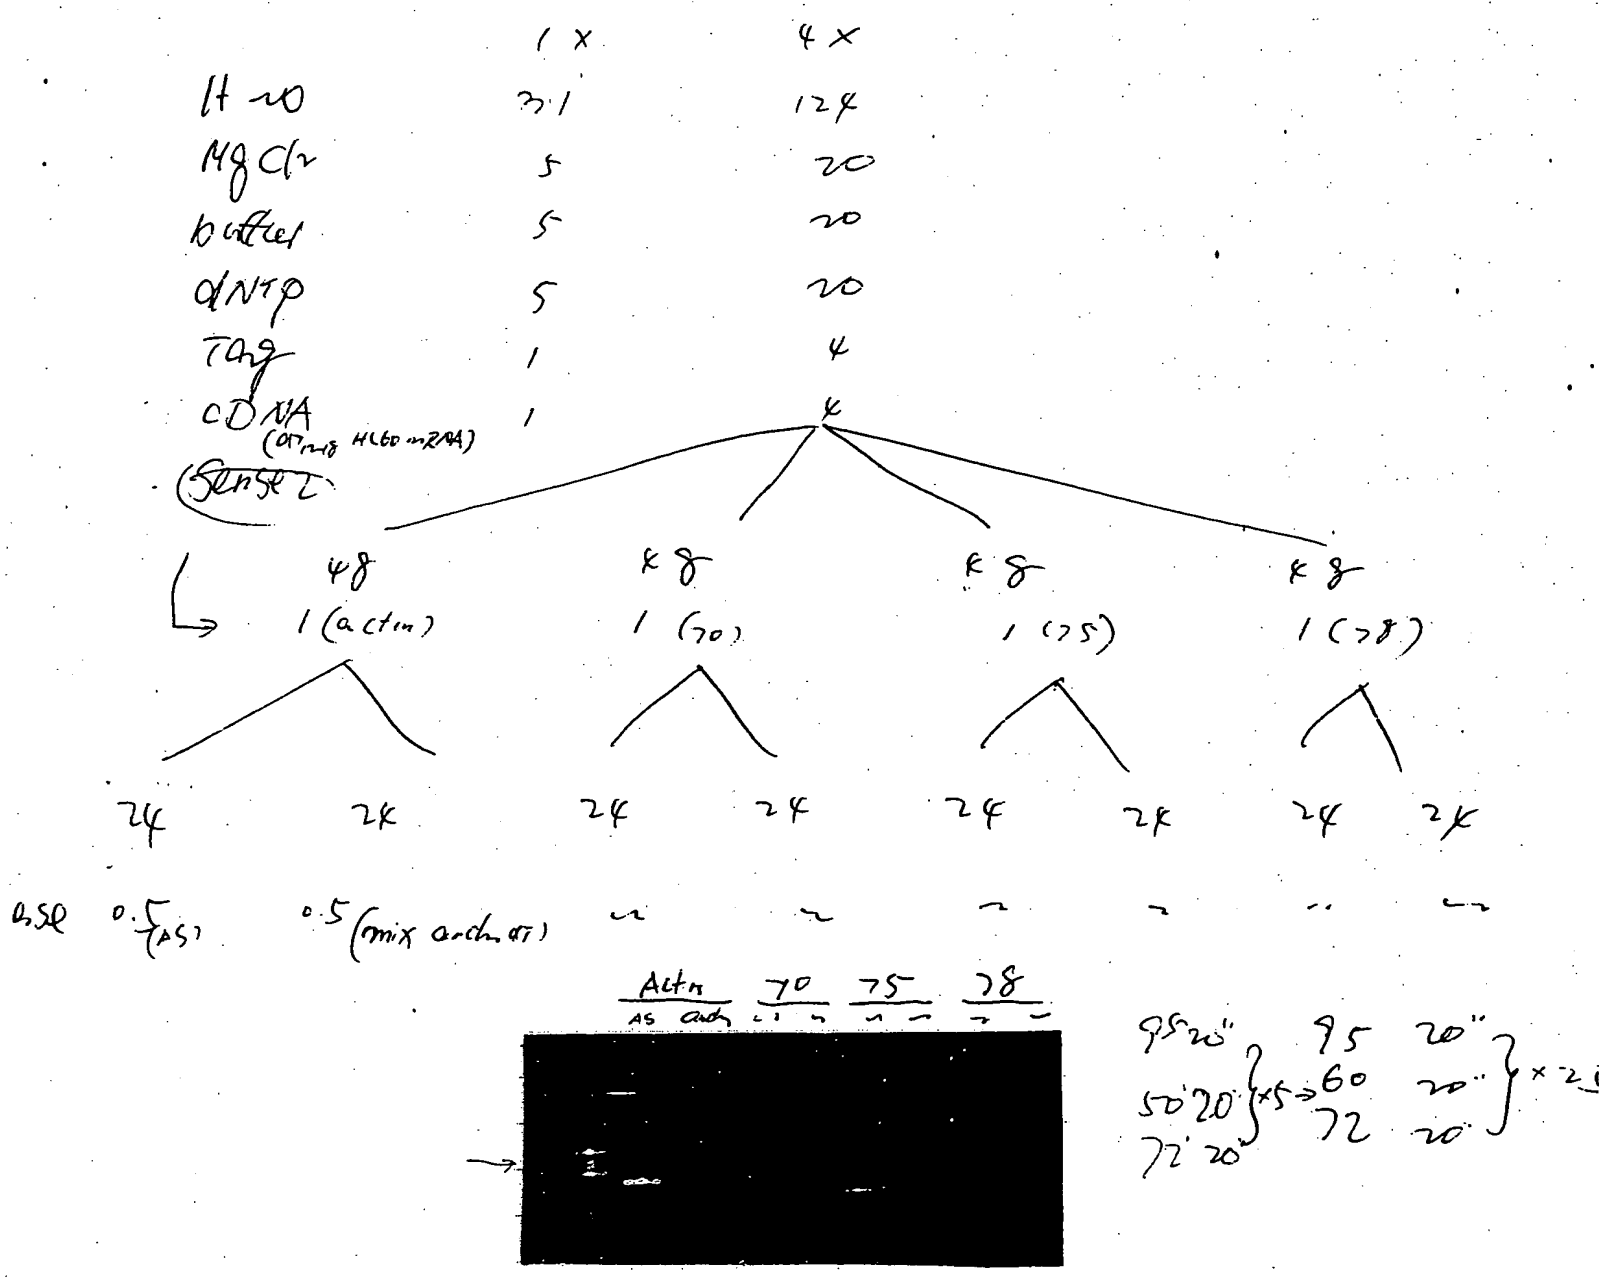 1 X 4 X
H2O 31 124
MgCl2 5 20
buffer 5 20
dNTP 5 20
Taq 1 4
cDNA 1 4
(HL60 mRNA)
(Sense 2
48 48 48 48
1 (actin) 1 (70) 1 (75) 1 (78)
24 24 24 24 24 24 24 24
0.5 (AS) 0.5 (mix
Actin 70 75 78
AS
95 20" 95 20"
50 20" } x5 → 60 20" } x
72 20" 72 20"